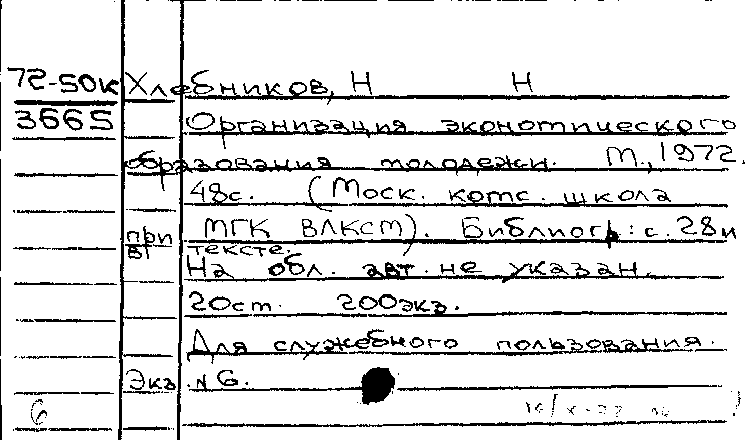 72-50к Хлебников, Н Н
3665 Организация экономического
образования молодежи. М., 1972.
48с. (Моск. комс. школа
МГК ВЛКСМ). Библиогр: с. 28 и
при в тексте.
На обл. авт. не указан.
20см. 200экз.
Для служебного пользования.
Экз. N 6.
6